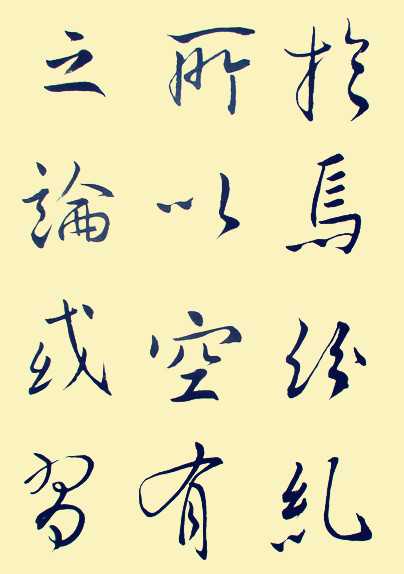 於焉紛糺
所以空有
之論或習